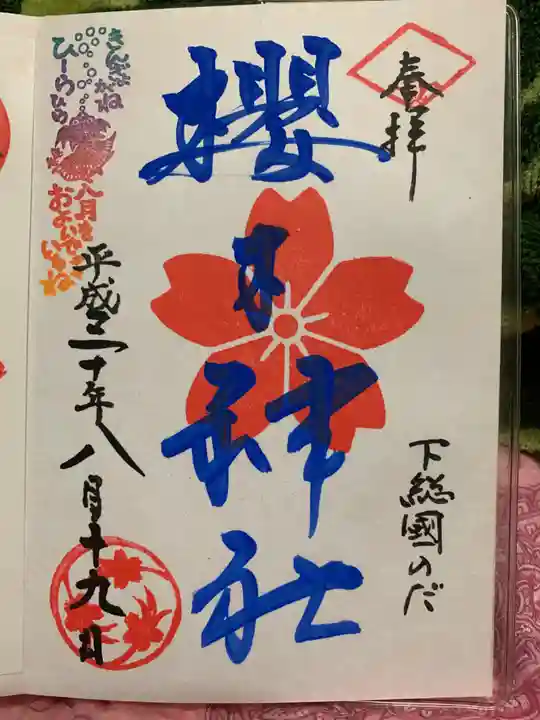 奉拝
下総國のだ
櫻木神社
平成三十年八月十九日
きんぎょがね
ひーらひら
八月を
およいで
いるね